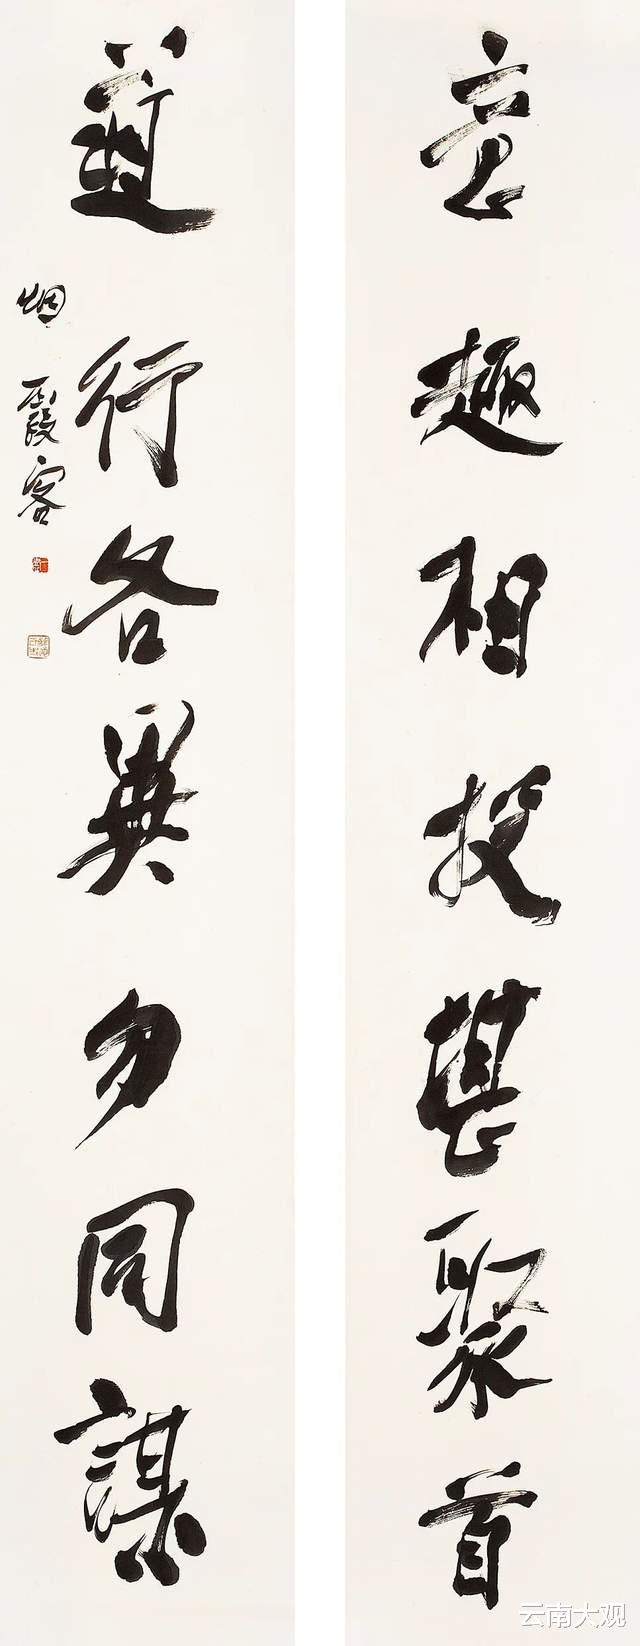 意趣相投甚聚首
道行各異勿同謀
烟霞客
云南大观